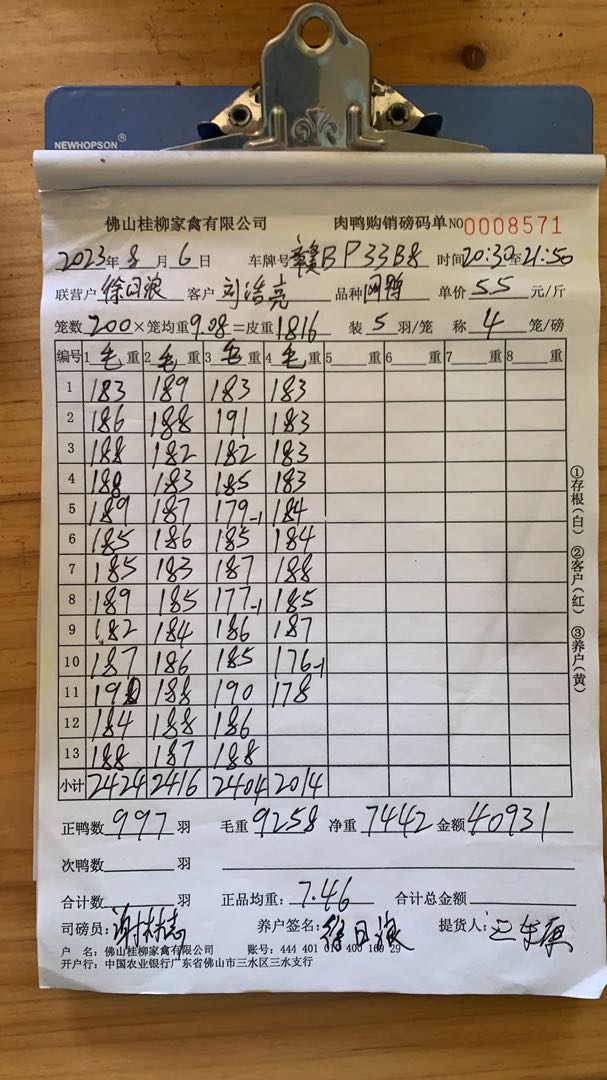 NEWHOPSON®
佛山桂柳家禽有限公司 肉鸭购销磅码单 NO 0008571
2023年8月6日 车牌号 赣BP33B8 时间20:30至21:50
联营户 徐日浪 客户 刘浩亮 品种 网鸭 单价 5.5 元/斤
笼数 200 × 笼均重 9.08 = 皮重 1816 装 5 羽/笼 称 4 笼/磅
编号 1 毛 重 2 毛 重 3 毛 重 4 毛 重 5 重 6 重 7 重 8 重
1 183 189 183 183
2 186 188 191 183
3 188 182 182 183
4 188 183 185 183
5 189 187 179-1 184
6 185 186 185 184
7 185 183 187 188
8 189 185 177-1 185
9 182 184 186 187
10 187 186 185 176-1
11 190 188 190 178
12 184 188 186
13 188 187 188
小计 2424 2416 2404 2014
①存根(白) ②客户(红) ③养户(黄)
正鸭数 997 羽 毛重 9258 净重 7442 金额 40931
次鸭数 羽
合计数 羽 正品均重: 7.46 合计总金额
司磅员: 谢林志 养户签名: 徐日浪 提货人:
户 名: 佛山桂柳家禽有限公司 账号: 444 401 010 400 169 29
开户行: 中国农业银行广东省佛山市三水区三水支行